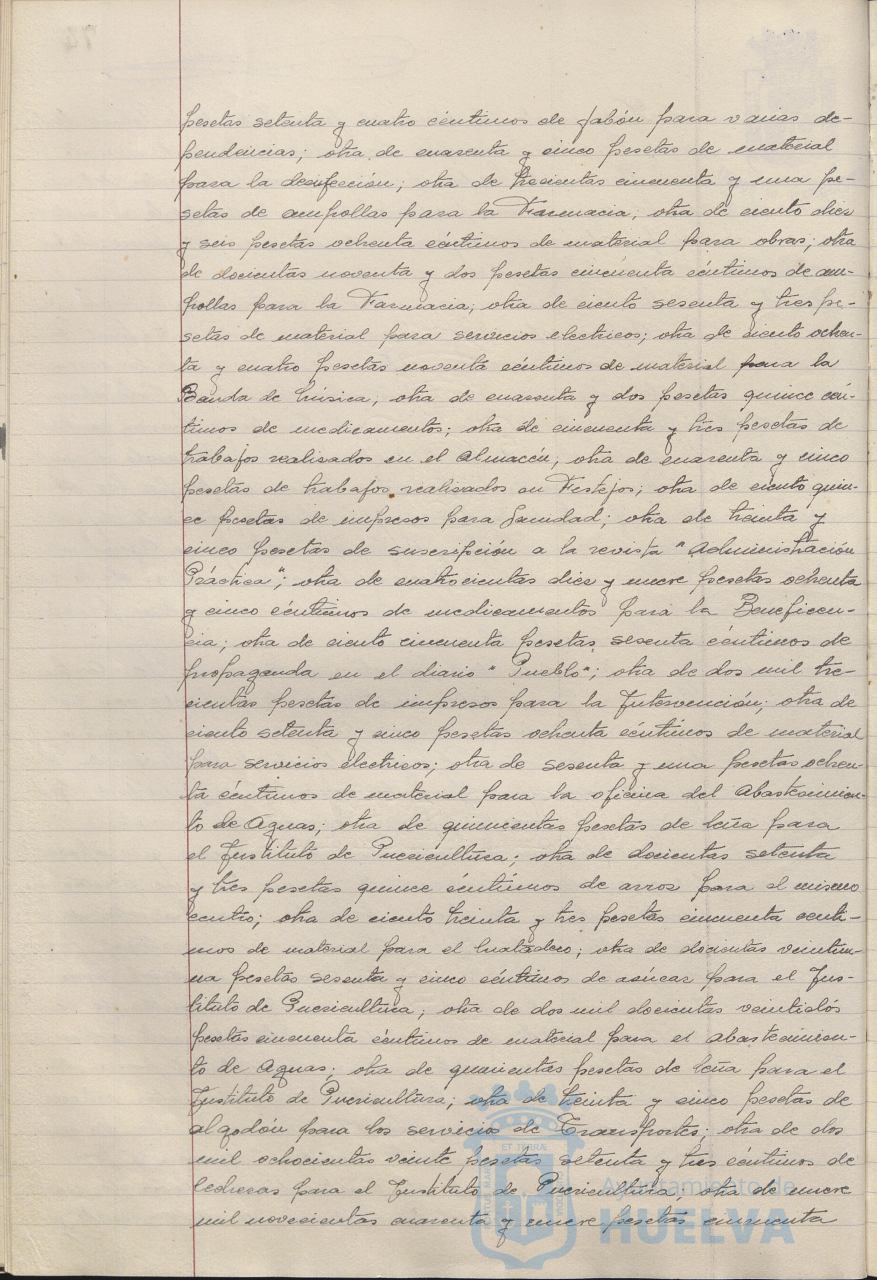 pesetas setenta y cuatro céntimos de jabón para varias de-
pendencias; otra de cuarenta y cinco pesetas de material
para la desinfección; otra de trecientas cincuenta y una pe-
setas de ampollas para la Farmacia; otra de ciento diez
y seis pesetas ochenta céntimos de material para obras; otra
de docientas noventa y dos pesetas cincuenta céntimos de am-
pollas para la Farmacia; otra de ciento sesenta y tres pe-
setas de material para servicios electricos; otra de ciento ochen-
ta y cuatro pesetas noventa céntimos de material para la
Banda de Música; otra de cuarenta y dos pesetas quince cén-
timos de medicamentos; otra de cincuenta y tres pesetas de
trabajos realisados en el Almacén; otra de cuarenta y cinco
pesetas de trabajos realisados en Festejos; otra de ciento quin-
ce pesetas de impresos para Sanidad; otra de treinta y
cinco pesetas de suscripción a la revista "Administración
Práctica"; otra de cuatrocientas diez y nueve pesetas ochenta
y cinco céntimos de medicamentos para la Beneficen-
cia; otra de ciento cincuenta pesetas sesenta céntimos de
propaganda en el diario "Pueblo"; otra de dos mil tre-
cientas pesetas de impresos para la Intervención; otra de
ciento setenta y cinco pesetas ochenta céntimos de material
para servicios electricos; otra de sesenta y una pesetas ochen-
ta céntimos de material para la oficina del Abastecimien-
to de Aguas; otra de quinientas pesetas de leña para
el Instituto de Puericultura; otra de docientas setenta
y tres pesetas quince céntimos de arros para el mismo
centro; otra de ciento treinta y tres pesetas cincuenta centi-
mos de material para el Matadero; otra de docientas veintiu-
na pesetas sesenta y cinco céntimos de asúcar para el Ins-
tituto de Puericultura; otra de dos mil docientas veintidós
pesetas cincuenta céntimos de material para el abastecimien-
to de Aguas; otra de quinientas pesetas de leña para el
Instituto de Puericultura; otra de treinta y cinco pesetas de
algodón para los servicios de Transportes; otra de dos
mil ochocientas veinte pesetas setenta y tres céntimos de
lecheras para el Instituto de Puericultura; otra de nueve
mil novecientas cuarenta y nueve pesetas cincuenta
Ayuntamiento de
HUELVA